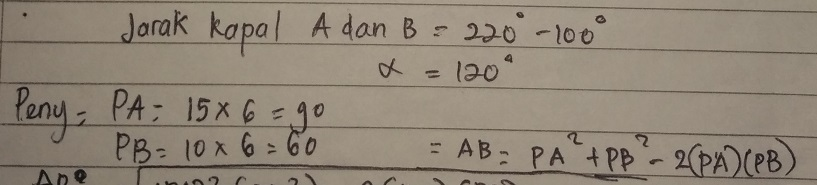 Jarak kapal A dan B = 220° - 100°
α = 120°
Peny = PA = 15 x 6 = 90
PB = 10 x 6 = 60 = AB = PA² + PB² - 2(PA)(PB)